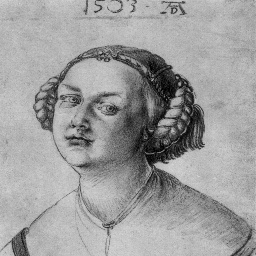 1503 · AD